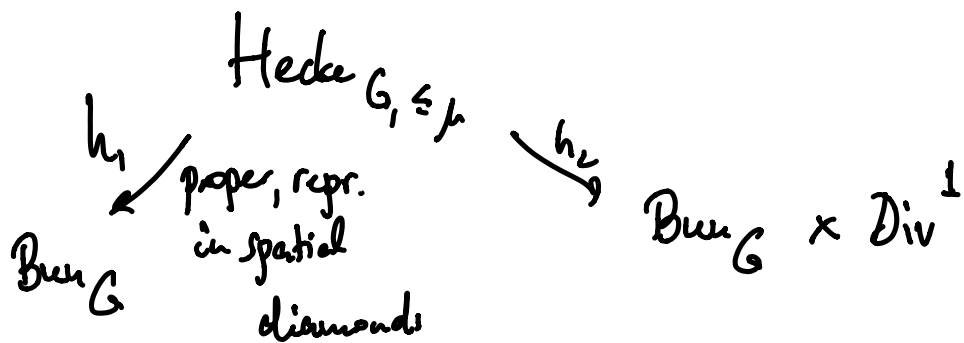 Hecke G, ≤ μ
h₁ h₂
proper, repr.
in spatial
diamonds
Bun_G
Bun_G × Div¹